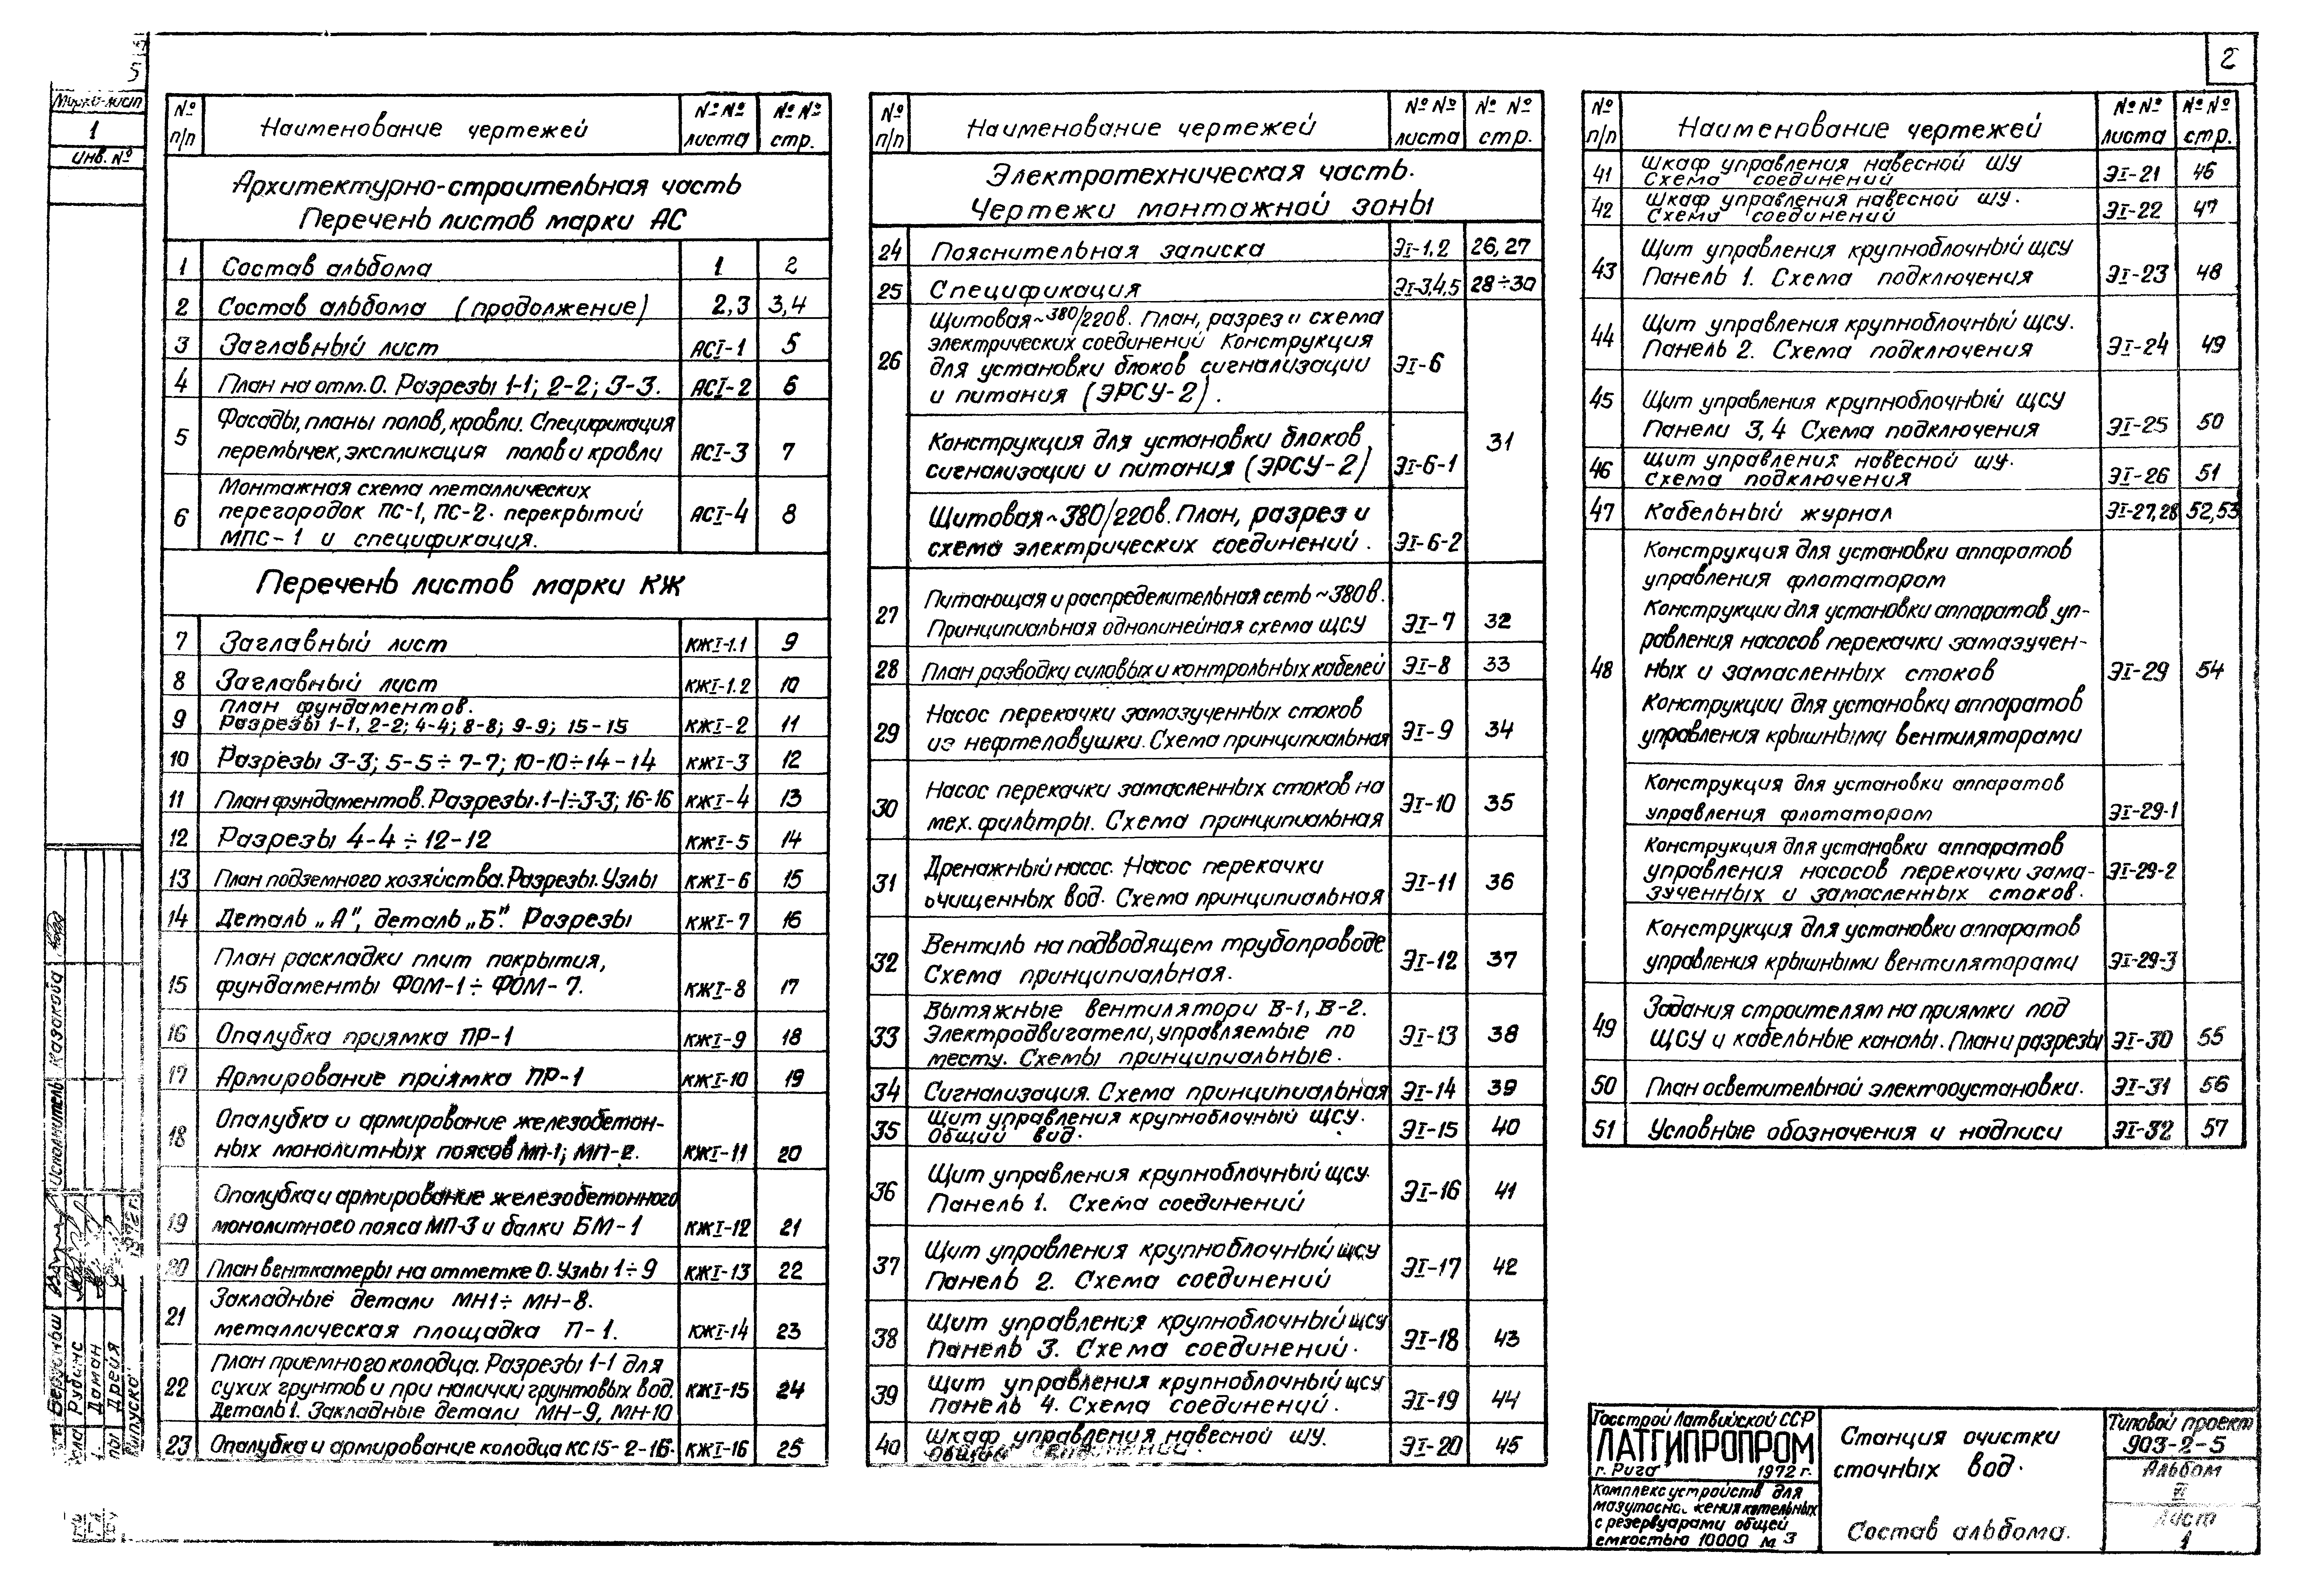 2
5
Марка-лист
1
Инв. №
№ п/п Наименование чертежей №№ листа №№ стр.
Архитектурно-строительная часть
Перечень листов марки АС
1 Состав альбома 1 2
2 Состав альбома (продолжение) 2,3 3,4
3 Заглавный лист АСI-1 5
4 План на отм.0. Разрезы 1-1; 2-2; 3-3. АСI-2 6
Фасады, планы полов, кровли. Спецификация
5 перемычек, экспликация полов и кровли АСI-3 7
Монтажная схема металлических
6 перегородок ПС-1, ПС-2. перекрытий АСI-4 8
МПС-1 и спецификация.
Перечень листов марки КЖ
7 Заглавный лист КЖI-1.1 9
8 Заглавный лист КЖI-1.2 10
План фундаментов.
9 Разрезы 1-1, 2-2; 4-4; 8-8; 9-9; 15-15 КЖI-2 11
10 Разрезы 3-3; 5-5÷7-7; 10-10÷14-14 КЖI-3 12
11 План фундаментов. Разрезы. 1-1÷3-3; 16-16 КЖI-4 13
12 Разрезы 4-4÷12-12 КЖI-5 14
13 План подземного хозяйства. Разрезы. Узлы КЖI-6 15
14 Деталь „А", деталь „Б". Разрезы КЖI-7 16
План раскладки плит покрытия,
15 фундаменты ФОМ-1÷ФОМ-7. КЖI-8 17
16 Опалубка приямка ПР-1 КЖI-9 18
17 Армирование приямка ПР-1 КЖI-10 19
Опалубка и армирование железобетон-
18 ных монолитных поясов МП-1; МП-2. КЖI-11 20
Опалубка и армирование железобетонного
19 монолитного пояса МП-3 и балки БМ-1 КЖI-12 21
20 План венткамеры на отметке 0. Узлы 1÷9 КЖI-13 22
Закладные детали МН1÷МН-8.
21 металлическая площадка П-1. КЖI-14 23
План приемного колодца. Разрезы 1-1 для
22 сухих грунтов и при наличии грунтовых вод. КЖI-15 24
Деталь 1. Закладные детали МН-9, МН-10
23 Опалубка и армирование колодца КС15-2-16. КЖI-16 25
№ п/п Наименование чертежей №№ листа №№ стр.
Электротехническая часть.
Чертежи монтажной зоны
24 Пояснительная записка ЭI-1,2 26,27
25 Спецификация ЭI-3,4,5 28÷30
Щитовая ~380/220в. План, разрез и схема
электрических соединений Конструкция
26 для установки блоков сигнализации ЭI-6
и питания (ЭРСУ-2).
Конструкция для установки блоков 31
сигнализации и питания (ЭРСУ-2) ЭI-6-1
Щитовая ~380/220в. План, разрез и
схема электрических соединений. ЭI-6-2
Питающая и распределительная сеть ~380в.
27 Принципиальная однолинейная схема ЩСУ ЭI-7 32
28 План разводки силовых и контрольных кабелей ЭI-8 33
Насос перекачки замазученных стоков
29 из нефтеловушки. Схема принципиальная ЭI-9 34
Насос перекачки замасленных стоков на
30 мех. фильтры. Схема принципиальная ЭI-10 35
Дренажный насос. Насос перекачки
31 очищенных вод. Схема принципиальная ЭI-11 36
Вентиль на подводящем трубопроводе
32 Схема принципиальная. ЭI-12 37
Вытяжные вентилятори В-1, В-2.
33 Электродвигатели, управляемые по ЭI-13 38
месту. Схемы принципиальные.
34 Сигнализация. Схема принципиальная ЭI-14 39
Щит управления крупноблочный ЩСУ.
35 Общий вид. ЭI-15 40
Щит управления крупноблочный ЩСУ.
36 Панель 1. Схема соединений ЭI-16 41
Щит управления крупноблочный ЩСУ
37 Панель 2. Схема соединений ЭI-17 42
Щит управления крупноблочный ЩСУ
38 Панель 3. Схема соединений. ЭI-18 43
Щит управления крупноблочный ЩСУ
39 Панель 4. Схема соединений. ЭI-19 44
Шкаф управления навесной ШУ.
40 ЭI-20 45
№ п/п Наименование чертежей №№ листа №№ стр.
Шкаф управления навесной ШУ
41 Схема соединений ЭI-21 46
Шкаф управления навесной ШУ.
42 Схема соединений ЭI-22 47
Щит управления крупноблочный ЩСУ
43 Панель 1. Схема подключения ЭI-23 48
Щит управления крупноблочный ЩСУ.
44 Панель 2. Схема подключения ЭI-24 49
45 Щит управления крупноблочный ЩСУ
Панели 3,4 Схема подключения ЭI-25 50
Щит управления навесной ШУ.
46 Схема подключения ЭI-26 51
47 Кабельный журнал ЭI-27,28 52,53
Конструкция для установки аппаратов
управления флотатором
Конструкции для установки аппаратов уп-
равления насосов перекачки замазучен-
48 ных и замасленных стоков ЭI-29 54
Конструкции для установки аппаратов
управления крышными вентиляторами
Конструкция для установки аппаратов
управления флотатором ЭI-29-1
Конструкция для установки аппаратов
управления насосов перекачки зама- ЭI-29-2
зученных и замасленных стоков.
Конструкция для установки аппаратов
управления крышными вентиляторами ЭI-29-3
Задания строителям на приямки под
49 ЩСУ и кабельные каналы. План и разрезы ЭI-30 55
50 План осветительной электроустановки. ЭI-31 56
51 Условные обозначения и надписи ЭI-32 57
Госстрой Латвийской ССР
ЛАТГИПРОПРОМ
г. Рига 1972 г.
Комплекс устройств для
котельных
с резервуарами общей
емкостью 10000 м3
Станция очистки
сточных вод.
Состав альбома.
Типовой проект
903-2-5
Альбом
Лист
1
Исполнитель Казакова
Рубинс
Даман
Дрейя